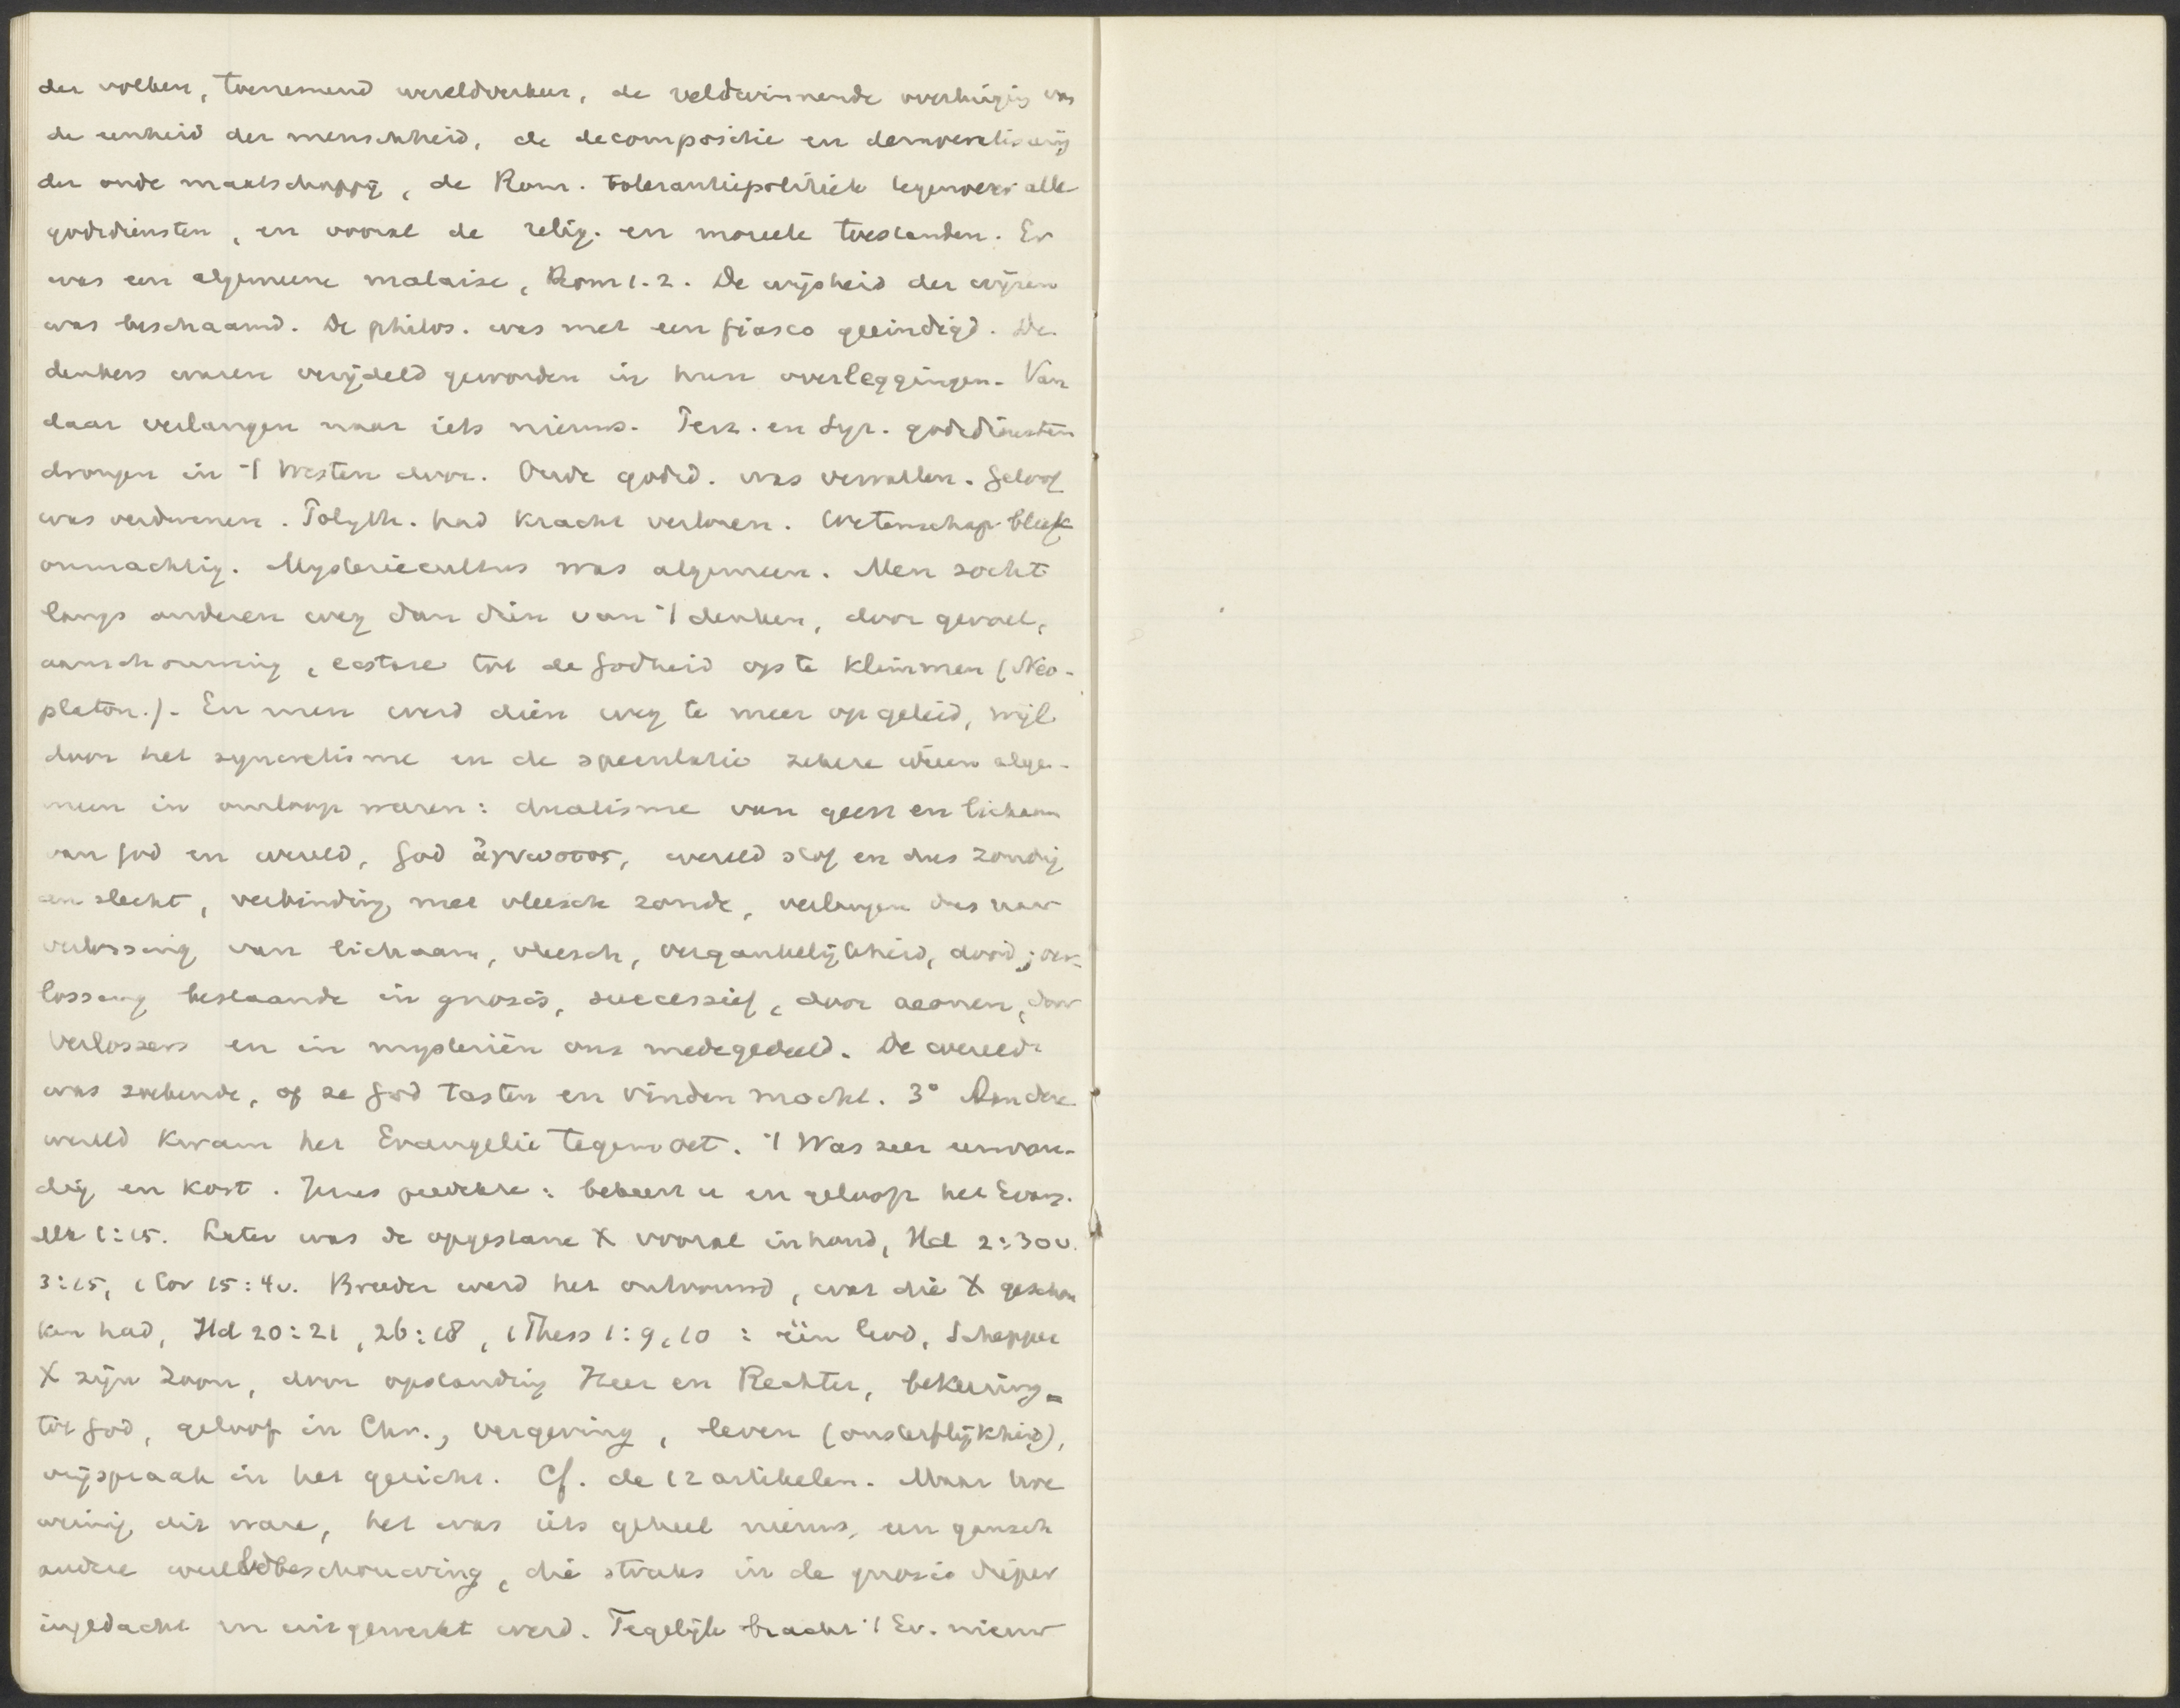 der volken, toenemend wereldverkeer, de veldwinnende overtuiging van
de eenheid der menschheid, de decompositie en demoralisering
der oude maatschappij, de Rom. tolerantiepolitiek tegenover alle
godsdiensten, en vooral de relig. en moreele toestanden. Er
was een algemeene malaise, Rom 1. 2. De wijsheid der wijzen
was beschaamd. De philos. was met een fiasco geëindigd. De
denkers waren verijdeld geworden in hun overleggingen. Van
daar verlangen naar iets nieuws. Perz. en Syr. godsdiensten
drongen in 't Westen door. Oude godsd. was vervallen. Geloof
was verdwenen. Polyth. had kracht verloren. Wetenschap bleek
onmachtig. Mysteriecultus was algemeen. Men zocht
langs anderen weg dan dien van 't denken, door gevoel,
aanschouwing, ecstase tot de Godheid op te klimmen (Neo-
platon.). En men werd dien weg te meer op geleid, wijl
door het syncretisme en de speculatie zekere ideeën alge-
meen in omloop waren: dualisme van geest en lichaam
van God en wereld, God ἄγνωστος, wereld stof en dus zondig
en slecht, verbinding met vleesch zonde, verlangen dus naar
verlossing van lichaam, vleesch, vergankelijkheid, dood; ver-
lossing bestaande in gnosis, successief, door aeonen, door
Verlossers en in mysteriën ons medegedeeld. De wereld
was zoekende, of ze God tasten en vinden mocht. 3° Aan deze
wereld kwam het Evangelie tegemoet. 't Was zeer eenvou-
dig en kort. Jezus predikte: bekeert u en gelooft het Evang.
Mk 1:15. Later was de opgestane X vooral inhoud, Hd 2:30v.
3:15, 1 Cor 15:4v. Breeder werd het ontvouwd, wat die X geschon
ken had, Hd 20:21, 26:18, 1 Thess 1:9,10: één God, Schepper
X zijn Zoon, door opstanding Heer en Rechter, bekeering
tot God, geloof in Chr., vergeving, leven (onsterflijkheid),
vrijspraak in het gericht. Cf. de 12 artikelen. Maar hoe
weinig dit ware, het was iets geheel nieuws, een gansch
andere wereldbeschouwing, die straks in de gnosis dieper
ingedacht en uitgewerkt werd. Tegelijk bracht 't Ev. nieuw